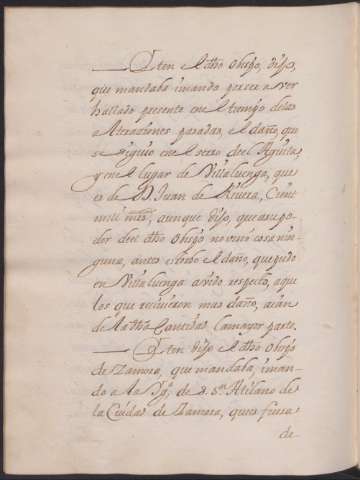 Yten el dho obispo, dijo,
que mandaba imando por ser aver
hallado presente en el tiempo delas
alteraciones pasadas, el daño, que
se siguio en el cerro del Aguila,
y en el lugar de Villaluenga, que
es de D. Juan de Rivera, Cient
mill mrs, aunque dijo, que a su po
der del dho Obispo no vino cosa nin
guna, antes estorbo el daño, que pudo
en Villaluenga avido respecto, a que
los que recivieron mas daño, aian
de la dha Cantidad la mayor parte.
Yten dijo el dho Obispo
de Zamora, que mandaba, iman
do a la Yg.ª de S.r S.n Atilano de
la Ciudad de Zamora, que es fuera
de